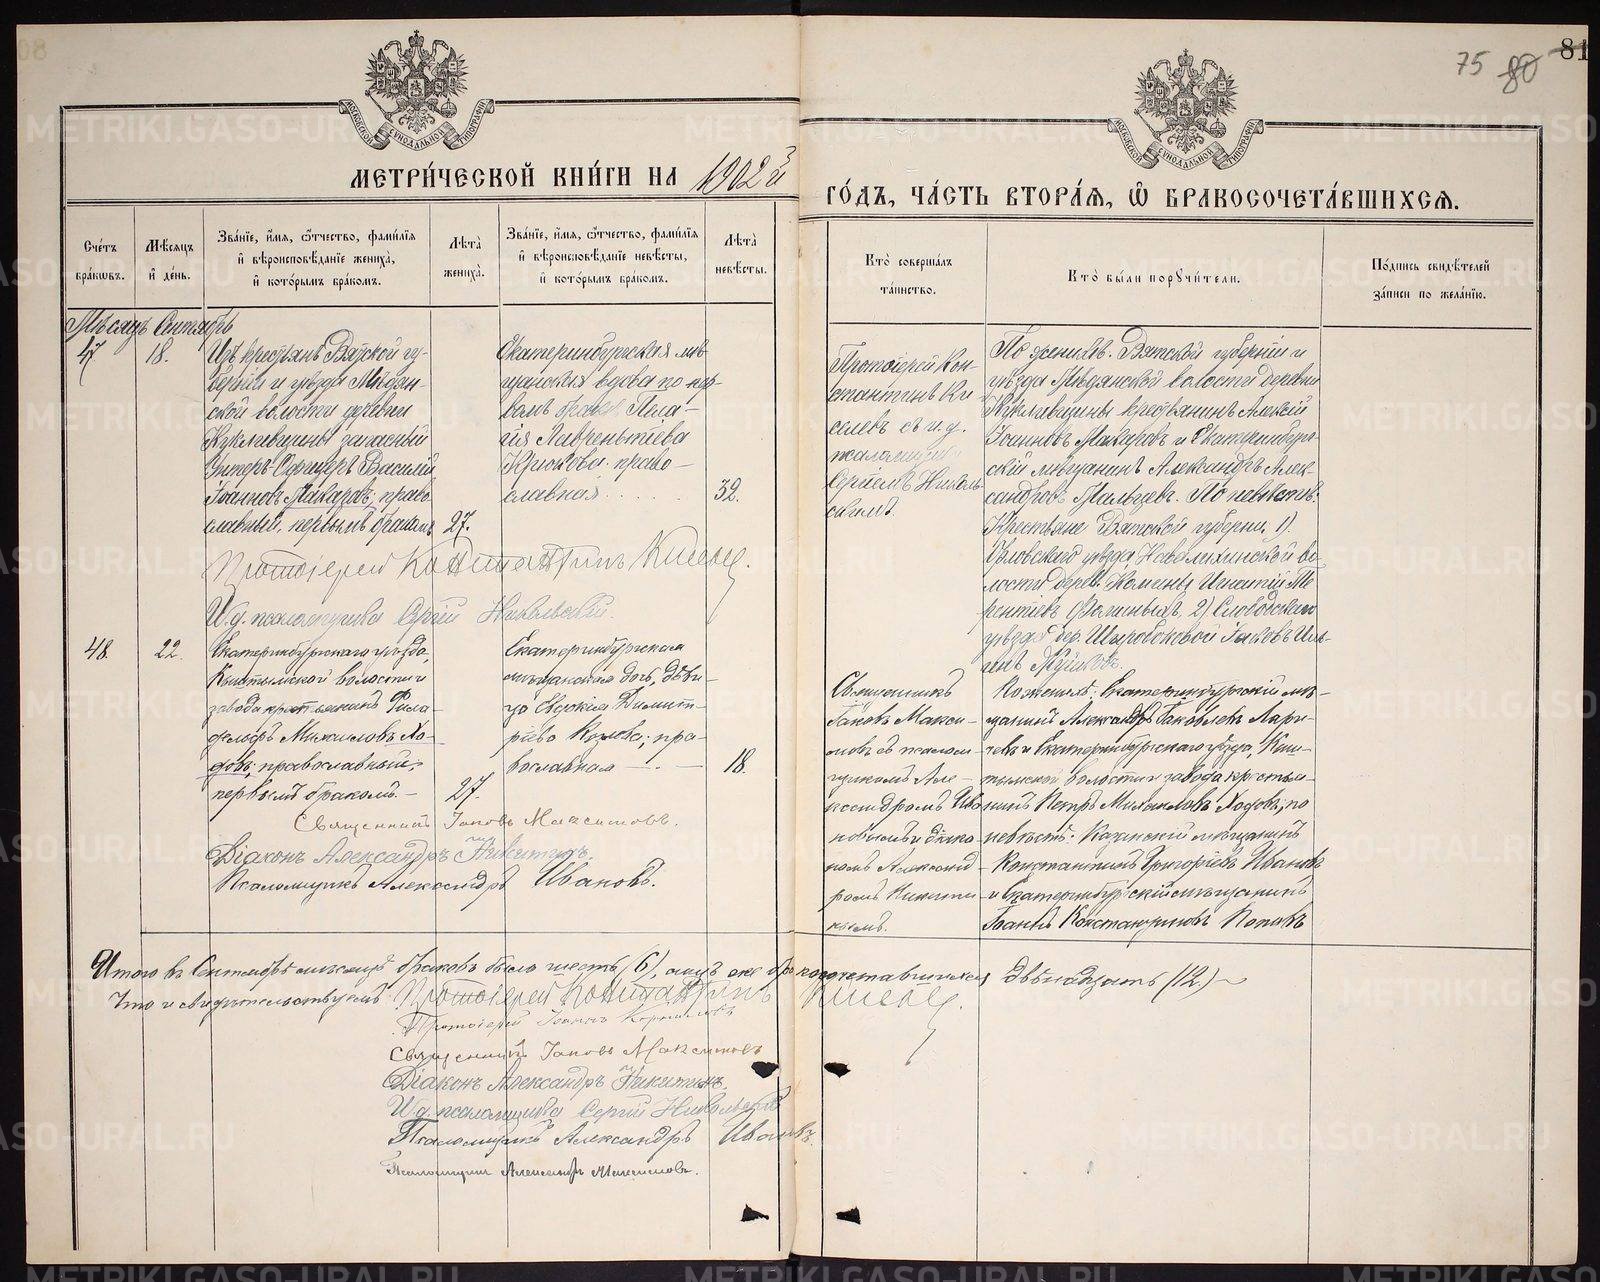 75 80 81
МЕТРИ́ЧЕСКОЙ КНИ́ГИ НА 1902 й
ГО́ДЪ, ЧА́СТЬ ВТОРА́Я, Ѡ БРАКОСОЧЕТА́ВШИХСЯ.
Сче́тъ бра́кωвъ.
Мѣ́сяцъ и҆ де́нь.
Зва́нїе, и҆́мя, ѻ҆́тчество, фами́лїя
и҆ вѣроисповѣ́данїе жениха̀,
и҆ кото́рымъ бра́комъ.
Лѣта̀ жениха̀.
Зва́нїе, и҆́мя, ѻ҆́тчество, фами́лїя
и҆ вѣроисповѣ́данїе невѣ́сты,
и҆ кото́рымъ бра́комъ.
Лѣта̀ невѣ́сты.
Кто̀ соверша́лъ та́инство.
Кто̀ бы́ли порꙋчи́тели.
По́дпись свидѣ́телей за́писи по жела́нїю.
Мѣсяцъ Сентябрь
47
18.
Изъ крестьянъ Вятской гу-
берніи и уѣзда Мѣдян-
ской волости деревни
Куклавщины запасный
Унтеръ-Офицеръ Василій
Іоанновъ Макаровъ; право-
славный, первымъ бракомъ
27.
Екатеринбургская мѣ-
щанская вдова по пер-
вомъ бракѣ Пела-
гія Лаврентіева
Крюкова право-
славная
32.
Протоіерей Кон-
стантинъ Ки-
селевъ съ и.д.
псаломщика
Сергіемъ Николь-
скимъ.
По женихѣ: Вятской губерніи и
уѣзда Мѣдянской волости деревни
Куклавщины крестьянинъ Алексій
Іоанновъ Макаровъ и Екатеринбург-
скій мѣщанинъ Александръ Алек-
сандровъ Мальцевъ. По невѣстѣ:
Крестьяне Вятской губерніи, 1)
Орловскаго уѣзда, волости дерев. Игнатій
2) Слободского
уѣзда дер. Широкоской Яковъ Иль-
инъ
Протоіерей Константинъ Киселевъ.
И.д. псаломщика Сергій Никольскій.
48.
22.
Екатеринбургскаго уѣзда,
Кыштымской волости и
завода крестьянинъ Фила-
дельфъ Михаиловъ Хо-
довъ; православный;
первымъ бракомъ. –
27.
Екатеринбургская
мѣщанская дочь, дѣви-
ца Евдокія Димит-
ріева Козлова; пра-
вославная
18.
Священникъ
Іаковъ Макси-
мовъ съ псалом-
щикомъ Але-
ксандромъ Ива-
новымъ и діако-
номъ Александ-
ромъ Никити-
нымъ.
По женихѣ: Екатеринбургскій мѣ-
щанинъ Александръ Іаковлевъ Лари-
чевъ и Екатеринбургскаго уѣзда, Кыш-
тымской волости и завода крестья-
нинъ Петръ Михаиловъ Ходовъ; по
невѣстѣ: Казанскій мѣщанинъ
Константинъ Григоріевъ Ивановъ
и Екатеринбургскій мѣщанинъ
Іоаннъ Константиновъ Поповъ
Священникъ Іаковъ Максимовъ.
Діаконъ Александръ Никитинъ.
Псаломщикъ Александръ Ивановъ.
Итого въ Сентябрѣ мѣсяцѣ браковъ было шесть (6), лицъ же бракосочетавшихся двѣнадцать (12.)
Что и свидѣтельствуемъ: Протоіерей Константинъ Киселевъ.
Протоіерей Іоаннъ Корниловъ
Священникъ Іаковъ Максимовъ
Діаконъ Александръ Никитинъ.
И.д. псаломщика Сергій Никольскій
Псаломщикъ Александръ Ивановъ.
Псаломщикъ Александръ Максимовъ.
METRIKI.GASO-URAL.RU